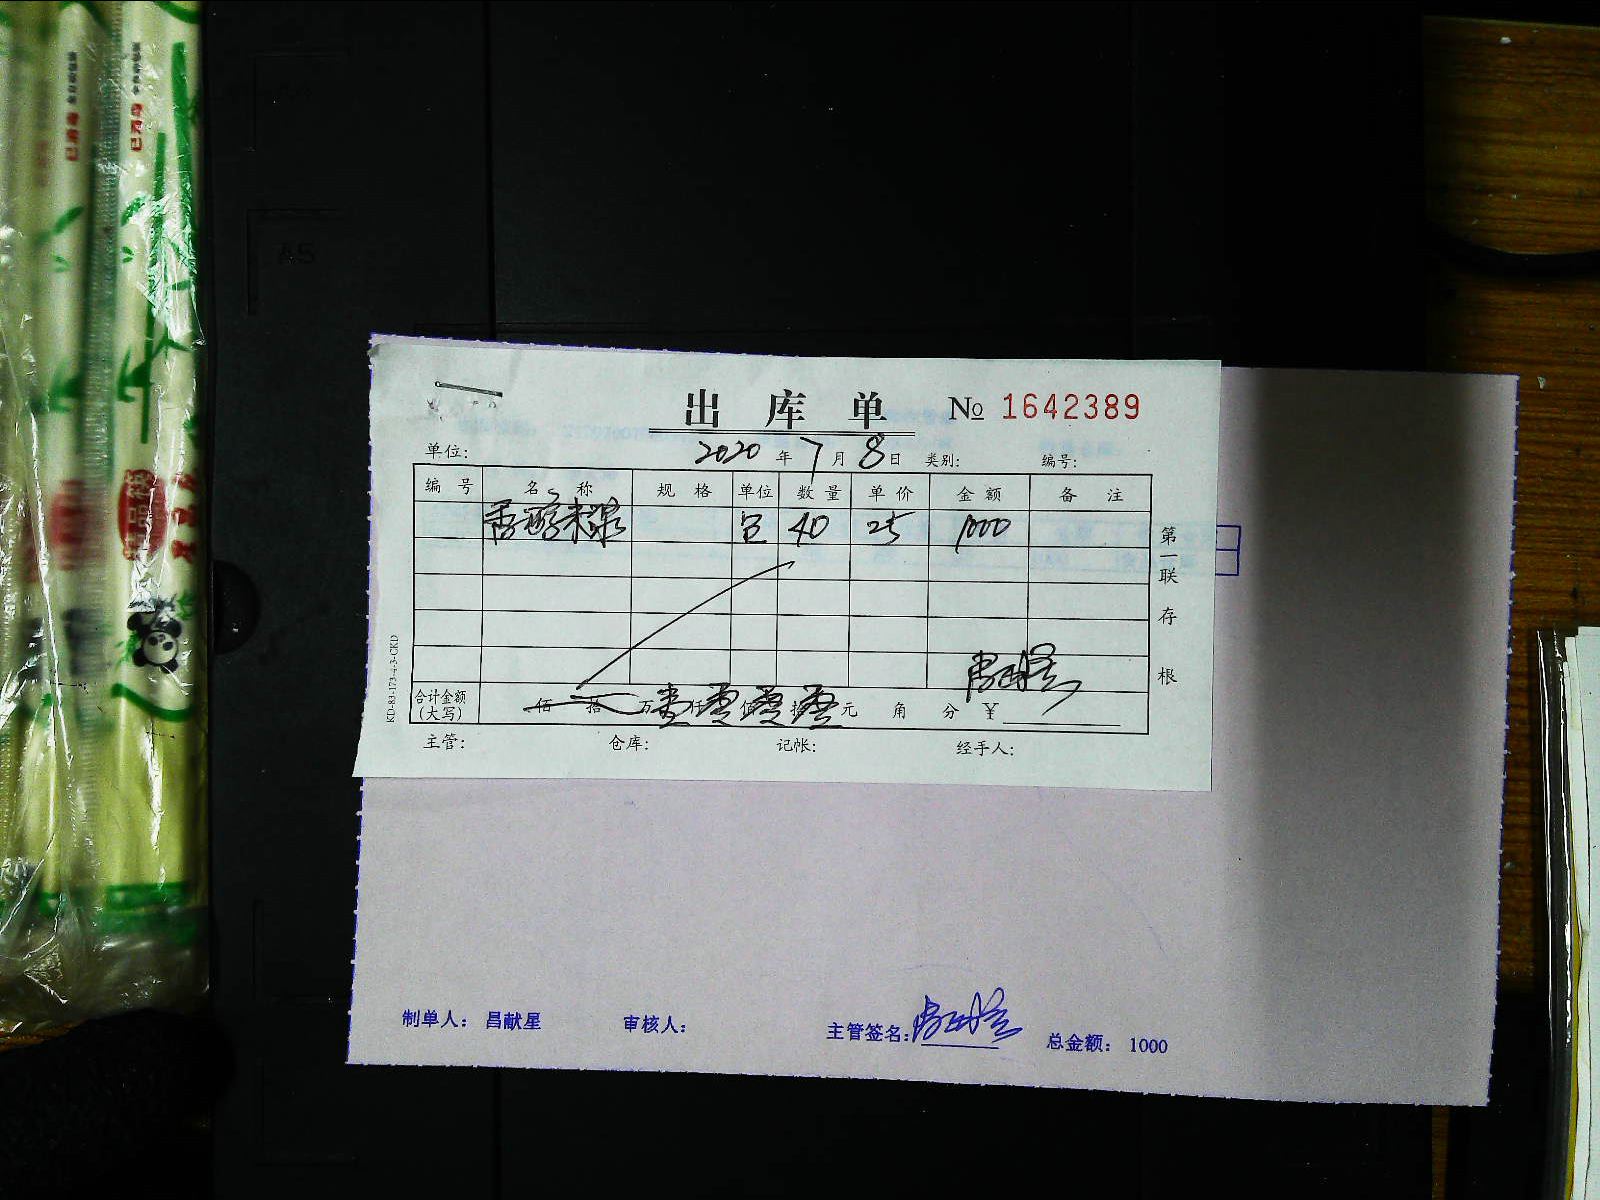 出库单 № 1642389
单位: 2020年7月8日 类别: 编号:
编号 名称 规格 单位 数量 单价 金额 备注
香醇米浆 包 40 25 1000
合计金额(大写) 佰 拾 万 壹仟零佰零拾零元 角 分 ¥
主管: 仓库: 记帐: 经手人:
第一联 存根
KD-83-173-4-3-CKD
制单人: 昌献星 审核人: 主管签名: 总金额: 1000
A5
已消毒
已消毒